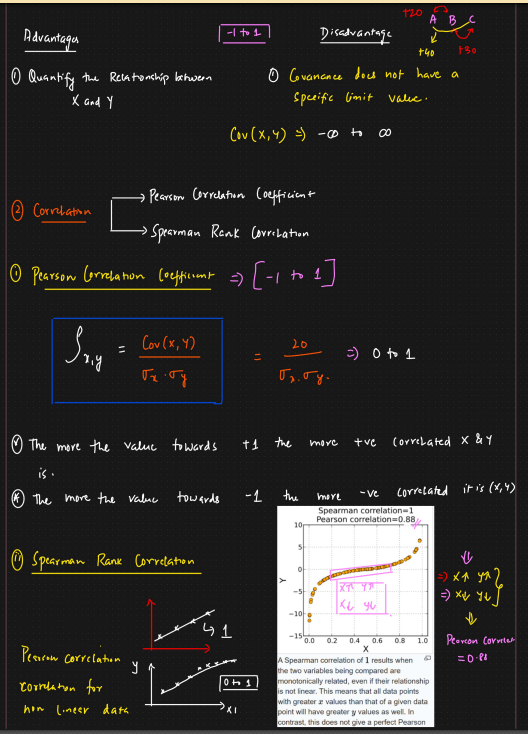 +20
A B C
Advantages
-1 to 1
Disadvantage
+40
+30
① Quantify the Relationship between
X and Y
① Covariance does not have a
specific limit value.
Cov(X,Y) => -∞ to ∞
② Correlation
→ Pearson Correlation Coefficient
→ Spearman Rank Correlation
① Pearson Correlation Coefficient => [-1 to 1]
ρx,y = Cov(X,Y) / σx·σy = 20 / σx·σy. => 0 to 1
The more the value towards +1 the more +ve correlated X & Y
is.
The more the value towards -1 the more -ve correlated it is (X,Y)
Spearman correlation=1
Pearson correlation=0.88
10
5
0
−5
−10
−15
Y
X↑ Y↑
X↓ Y↓
0.0 0.2 0.4 0.6 0.8 1.0
X
⇓
=> X↑ Y↑
=> X↓ Y↓
⇓
Pearson Correlat
= 0.88
(ii) Spearman Rank Correlation
→ 1
Pearson correlation
correlation for
non linear data
Y
0 to 1
→ X1
A Spearman correlation of 1 results when
the two variables being compared are
monotonically related, even if their relationship
is not linear. This means that all data points
with greater x values than that of a given data
point will have greater y values as well. In
contrast, this does not give a perfect Pearson